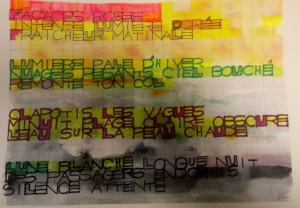 FAÇADES ROSES
LUMIERE DORÉE
FRAICHEUR MATINALE
LUMIERE PALE D'HIVER
NUAGES PESANTS CIEL BOUCHÉ
REMONTE TON COL
CLAPOTIS LES VAGUES
CONTRE OBSCURE
L'EAU SUR LA PEAU CHAUDE
LUNE BLANCHE LONGUE NUIT
DES PASSAGERS ENDORMIS
SILENCE ATTENTE